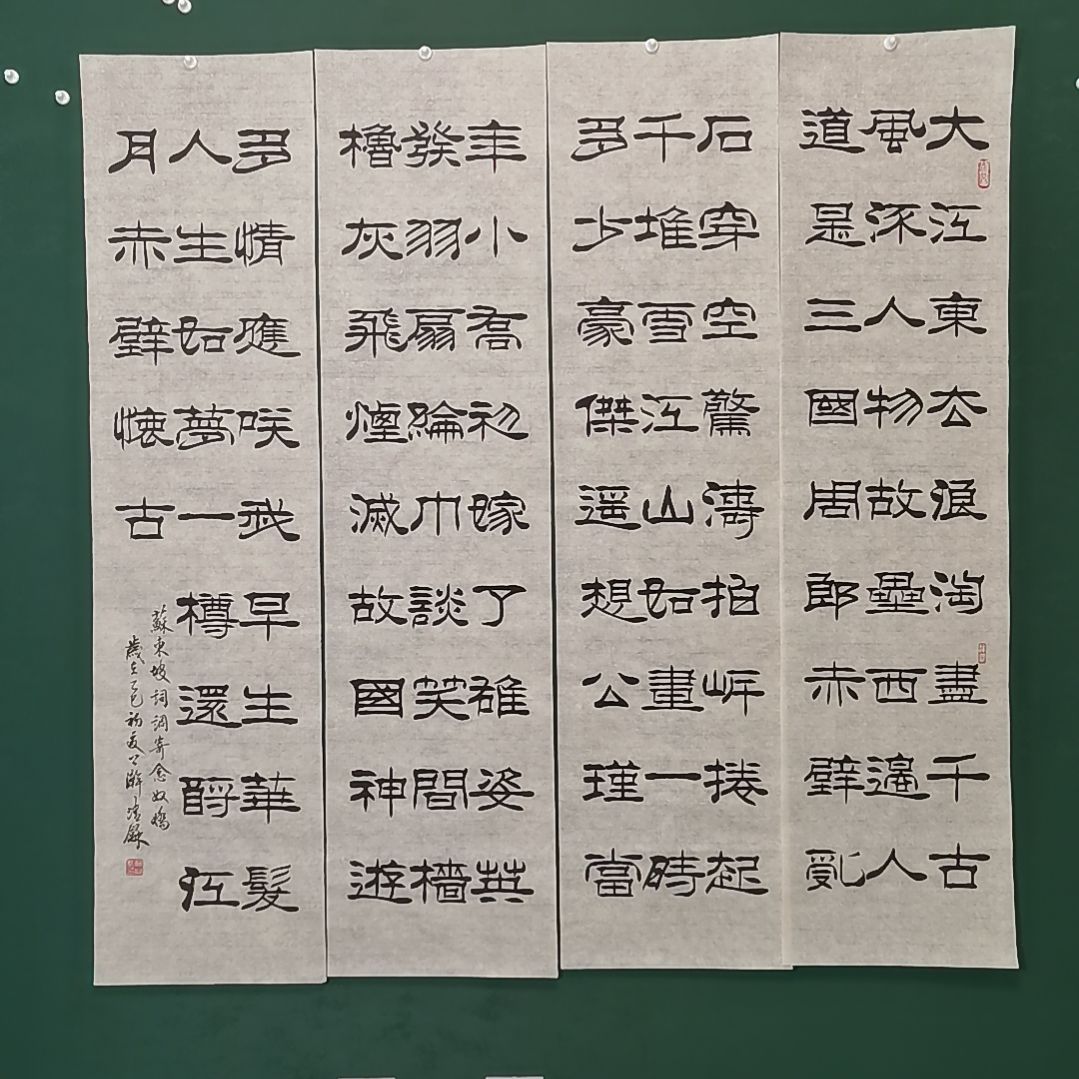 大江東去浪淘盡千古
風流人物故壘西邊人
道是三國周郎赤壁亂
石穿空驚濤拍岸捲起
千堆雪江山如畫一時
多少豪傑遥想公瑾當
年小喬初嫁了雄姿英
發羽扇綸巾談笑間檣
櫓灰飛煙滅故國神遊
多情應笑我早生華髮
人生如夢一樽還酹江
月赤壁懷古
蘇東坡詞調寄念奴嬌
歲在乙巳初夏